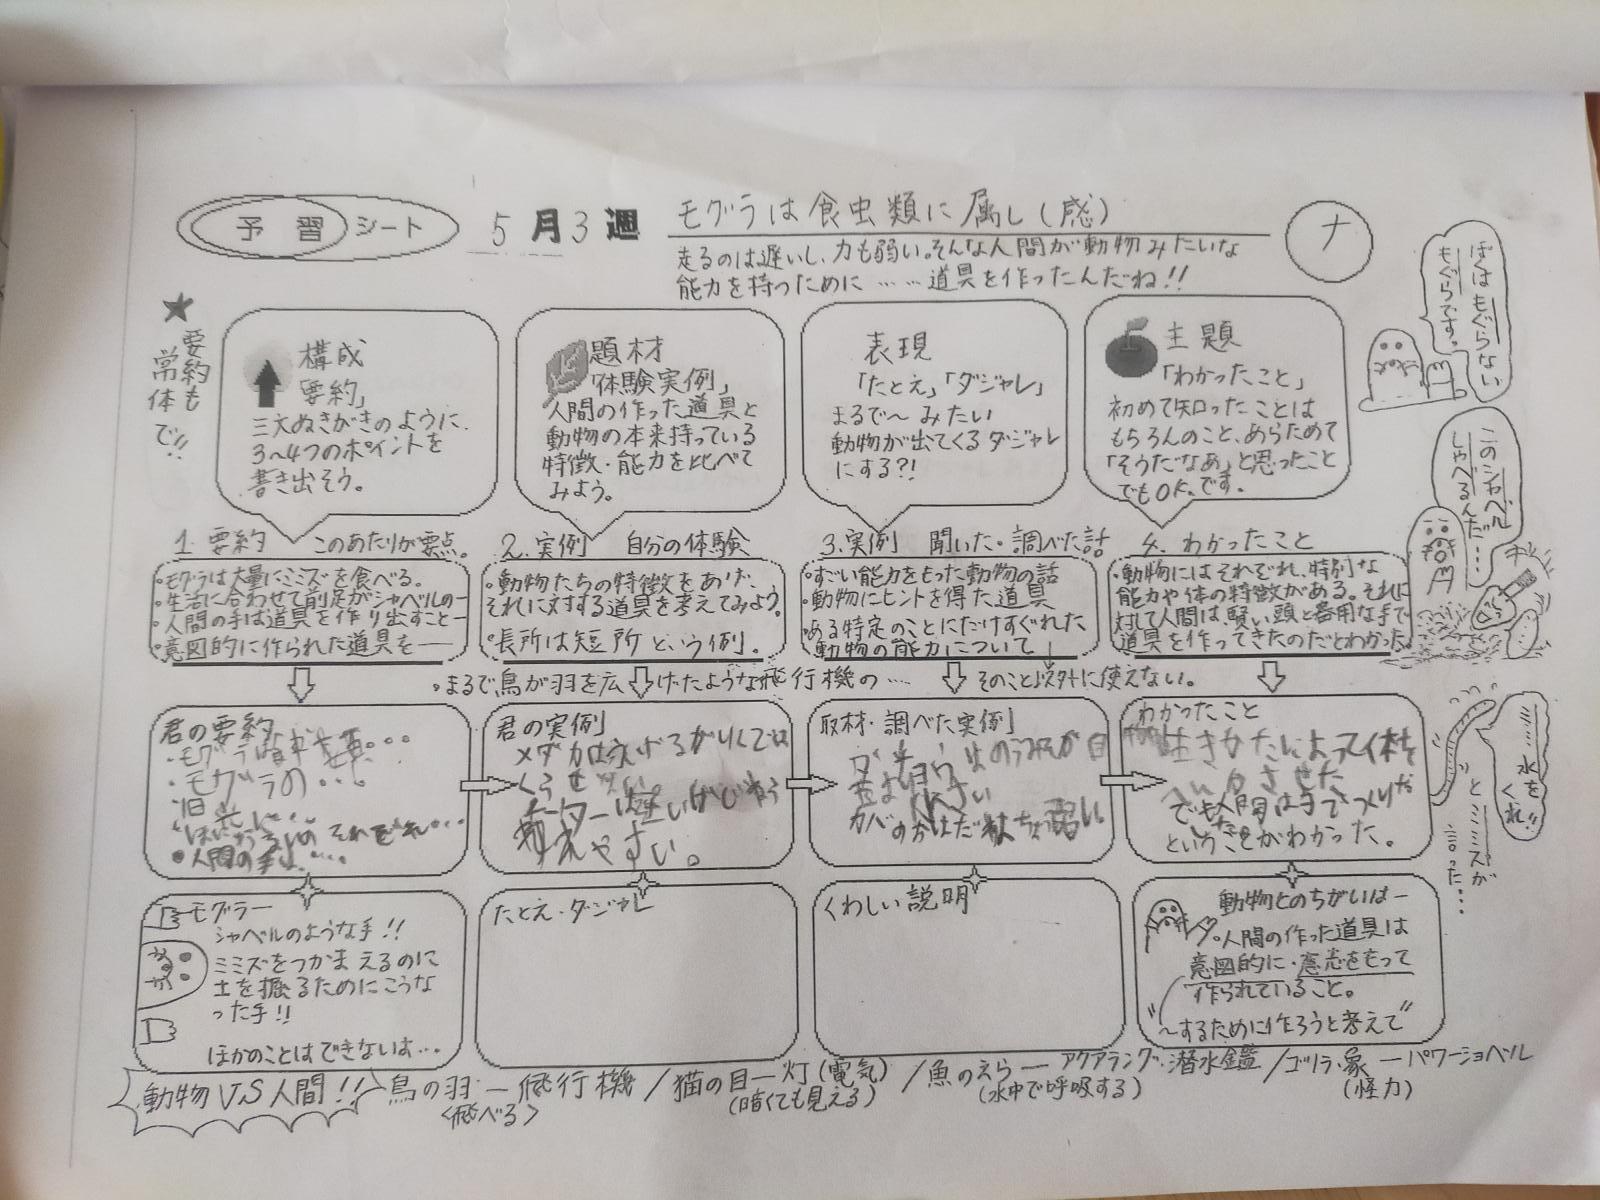 予習シート
5月3週
モグラは食虫類に属し(感)
ナ
走るのは遅いし、力も弱い。そんな人間が動物みたいな
能力を持つために……道具を作ったんだね!!
★要約も
常体で!!
構成
要約」
三大ぬきがきのように、
3~4つのポイントを
書き出そう。
題材
「体験実例」
人間の作った道具と
動物の本来持っている
特徴・能力を比べて
みよう。
表現
「たとえ」「ダジャレ」
まるで~みたい
動物が出てくるダジャレ
にする?!
主題
「わかったこと」
初めて知ったことは
もちろんのこと、あらためて
「そうだなあ」と思ったこと
でもOK.です。
ぼくはもぐらない
もぐらです。
このシャベル
しゃべるんだ…
1. 要約 このあたりが要点。
・モグラは大量にミミズを食べる。
・生活に合わせて前足がシャベルの―
・人間の手は道具を作り出すこと―
・意図的に作られた道具を――
2. 実例 自分の体験
・動物たちの特徴をあげ、
それに対する道具を考えてみよう。
・長所は短所という例。
3. 実例 聞いた・調べた話
・すごい能力をもった動物の話
・動物にヒントを得た道具
・ある特定のことにだけすぐれた
動物の能力について
4. わかったこと
・動物にはそれぞれ、特別な
能力や体の特徴がある。それに
対して人間は、賢い頭と器用な手で
道具を作ってきたのだとわかった。
・まるで鳥が羽を広げたような飛行機の….
そのこと以外に使えない。
君の要約
・モグラは
・モグラの…
・人間の手は…
君の実例
メダカは
やすい。
取材・調べた実例
カバの
わかったこと
生きかたによって体を
でも人間は手でつくりだ
ということがわかった。
水をくれ!!
とミミズが
言った…
モグラ―
シャベルのような手!!
ミミズをつかまえるのに
土を掘るためにこうな
った手!!
ほかのことはできないよ…
たとえ・ダジャレ
くわしい説明
動物とのちがいは―
・人間の作った道具は
意図的に・意志をもって
作られていること。
"~するために作ろうと考えて"
動物VS人間!! 鳥の羽―飛行機/猫の目―灯(電気)/魚のえら―アクアラング・潜水鑑/ゴリラ・象―パワーショベル
<飛べる> (暗くても見える) (水中で呼吸する) (怪力)